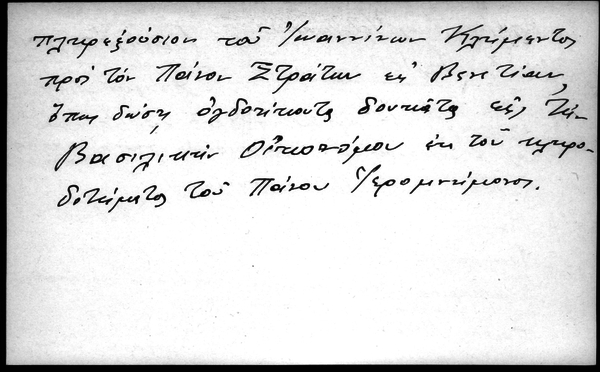 πληρεξούσιον τοῦ Ἰωαννίνων Κλήμεντος
πρὸς τὸν Πάνον Στράτον εἰς Βενετίαν,
ὅπως δώσῃ ὀγδοήκοντα δουκᾶτα εἰς τὴν
Βασιλικὴν Οἰκονόμου ἐκ τοῦ κληρο-
δοτήματος τοῦ Πάνου Ἱερομνήμονος.